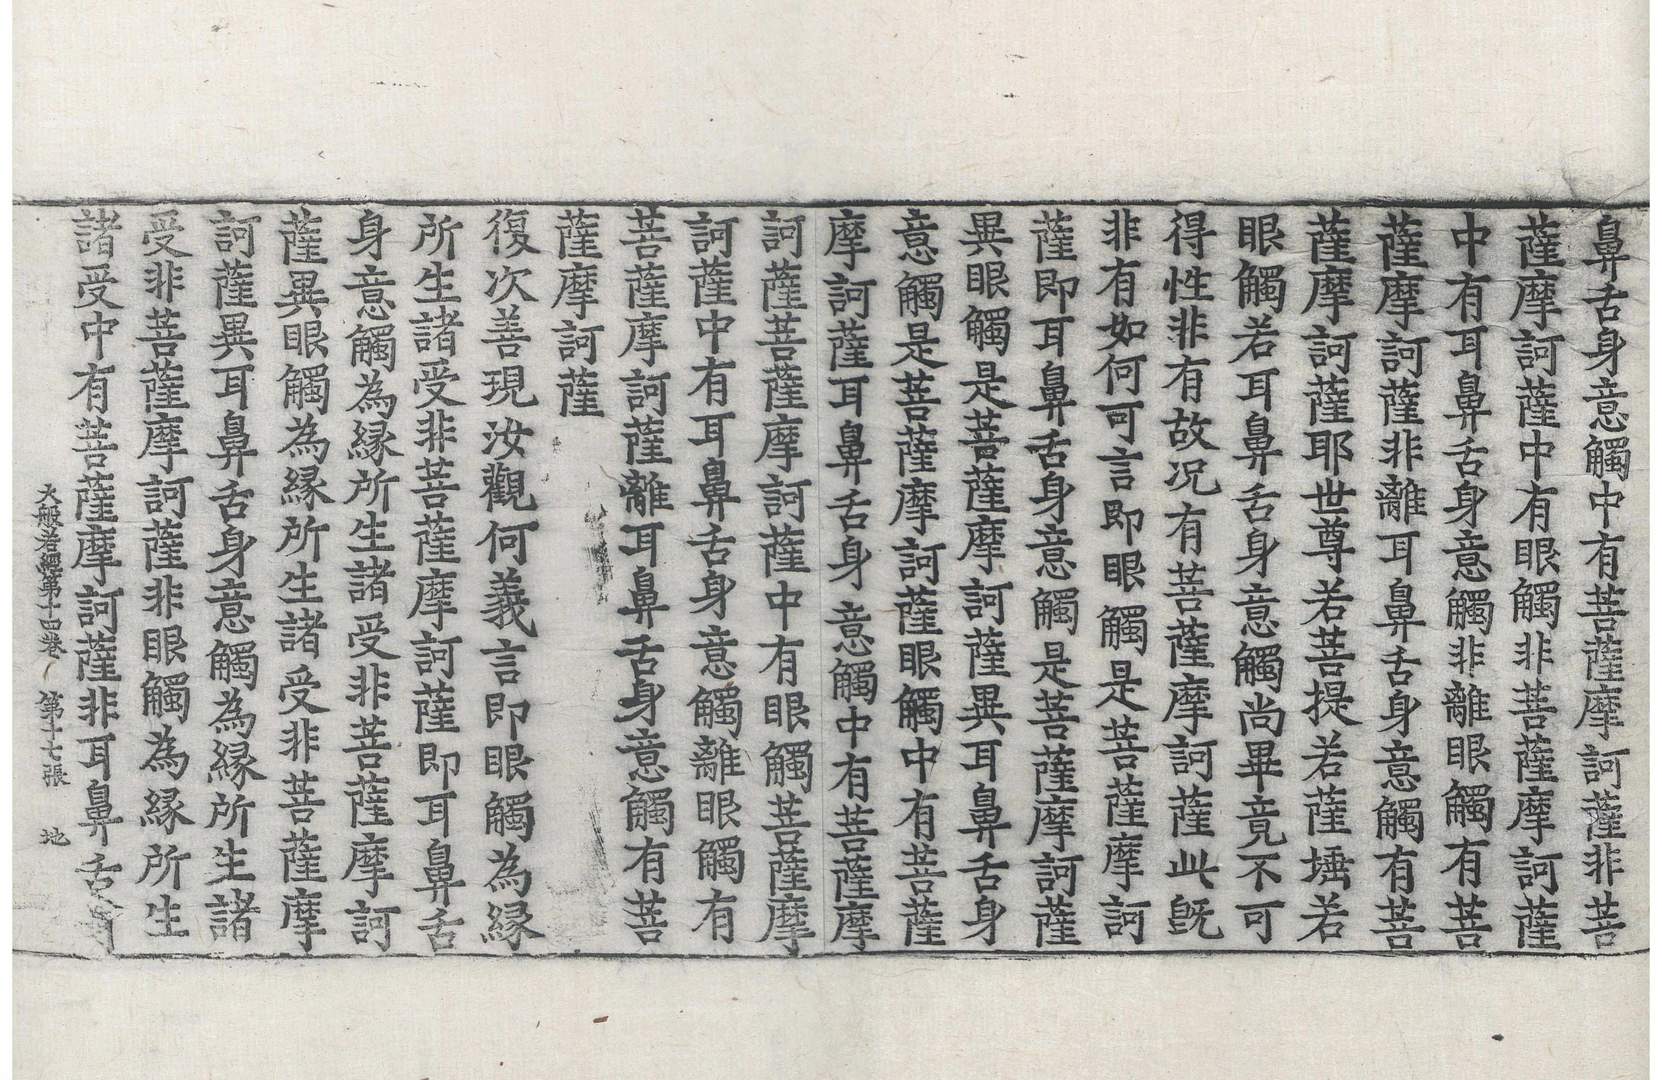 鼻舌身意觸中有菩薩摩訶薩非菩
薩摩訶薩中有眼觸非菩薩摩訶薩
中有耳鼻舌身意觸非離眼觸有菩
薩摩訶薩非離耳鼻舌身意觸有菩
薩摩訶薩耶世尊若菩提若薩埵若
眼觸若耳鼻舌身意觸尚畢竟不可
得性非有故况有菩薩摩訶薩此既
非有如何可言即眼觸是菩薩摩訶
薩即耳鼻舌身意觸是菩薩摩訶薩
異眼觸是菩薩摩訶薩異耳鼻舌身
意觸是菩薩摩訶薩眼觸中有菩薩
摩訶薩耳鼻舌身意觸中有菩薩摩
訶薩菩薩摩訶薩中有眼觸菩薩摩
訶薩中有耳鼻舌身意觸離眼觸有
菩薩摩訶薩離耳鼻舌身意觸有菩
薩摩訶薩
復次善現汝觀何義言即眼觸為縁
所生諸受非菩薩摩訶薩即耳鼻舌
身意觸為縁所生諸受非菩薩摩訶
薩異眼觸為縁所生諸受非菩薩摩
訶薩異耳鼻舌身意觸為縁所生諸
受非菩薩摩訶薩非眼觸為縁所生
諸受中有菩薩摩訶薩非耳鼻舌身
大般若經第十四卷 第十七張 地